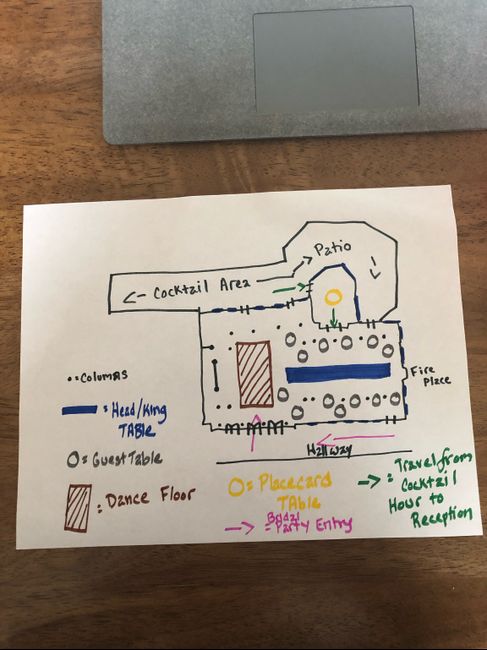 Patio
<- Cocktail Area
Fire
Place
•• = COLUMNS
= Head/King
TABLE
O = Guest Table
: Dance Floor
Hallway
O = Placecard
TABle
-> = Bridal
Party Entry
-> = Travel from
Cocktail
Hour to
Reception